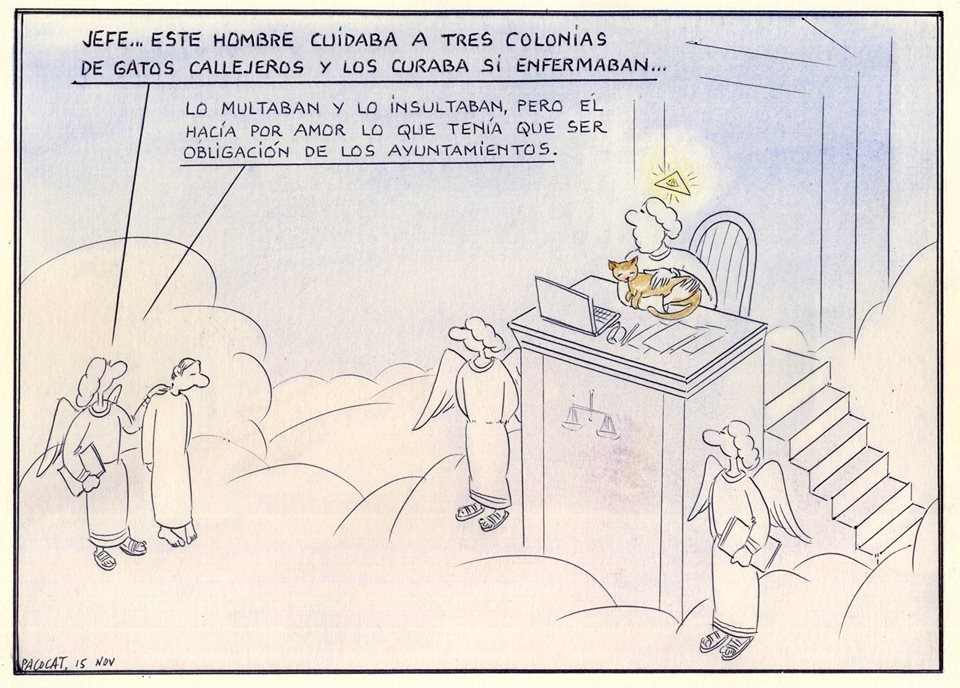 JEFE... ESTE HOMBRE CUIDABA A TRES COLONIAS
DE GATOS CALLEJEROS Y LOS CURABA SI ENFERMABAN...
LO MULTABAN Y LO INSULTABAN, PERO ÉL
HACÍA POR AMOR LO QUE TENÍA QUE SER
OBLIGACIÓN DE LOS AYUNTAMIENTOS.
PACOCAT, 15 NOV